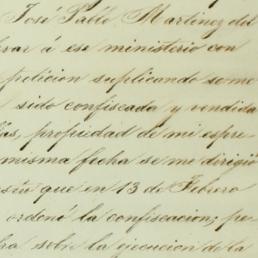 José Pablo Martinez del
evar á ese ministerio con
peticion suplicando so me
sido confiscada y vendida
las, propiedad de mi espre
misma fecha se me dirigió
que en 13 de Febrero
ordenó la confiscacion; pe
sobre la ejecucion de la